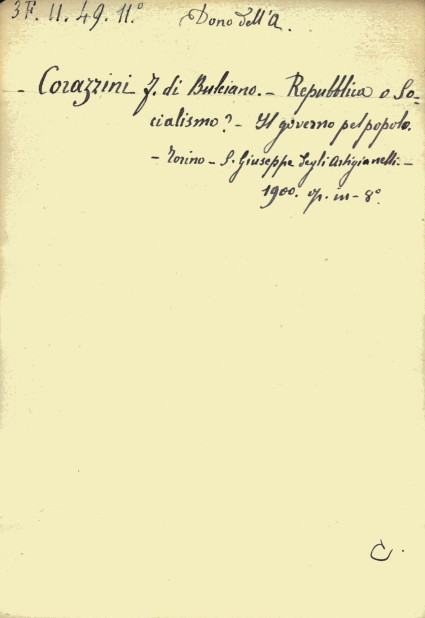 3F. 11. 49. 11.° Dono dell'A.
- Corazzini F. di Bulciano. - Repubblica o So-
cialismo? - Il governo pel popolo.
- Torino - S. Giuseppe degli Artigianelli. -
1900. op. in-8°
C.